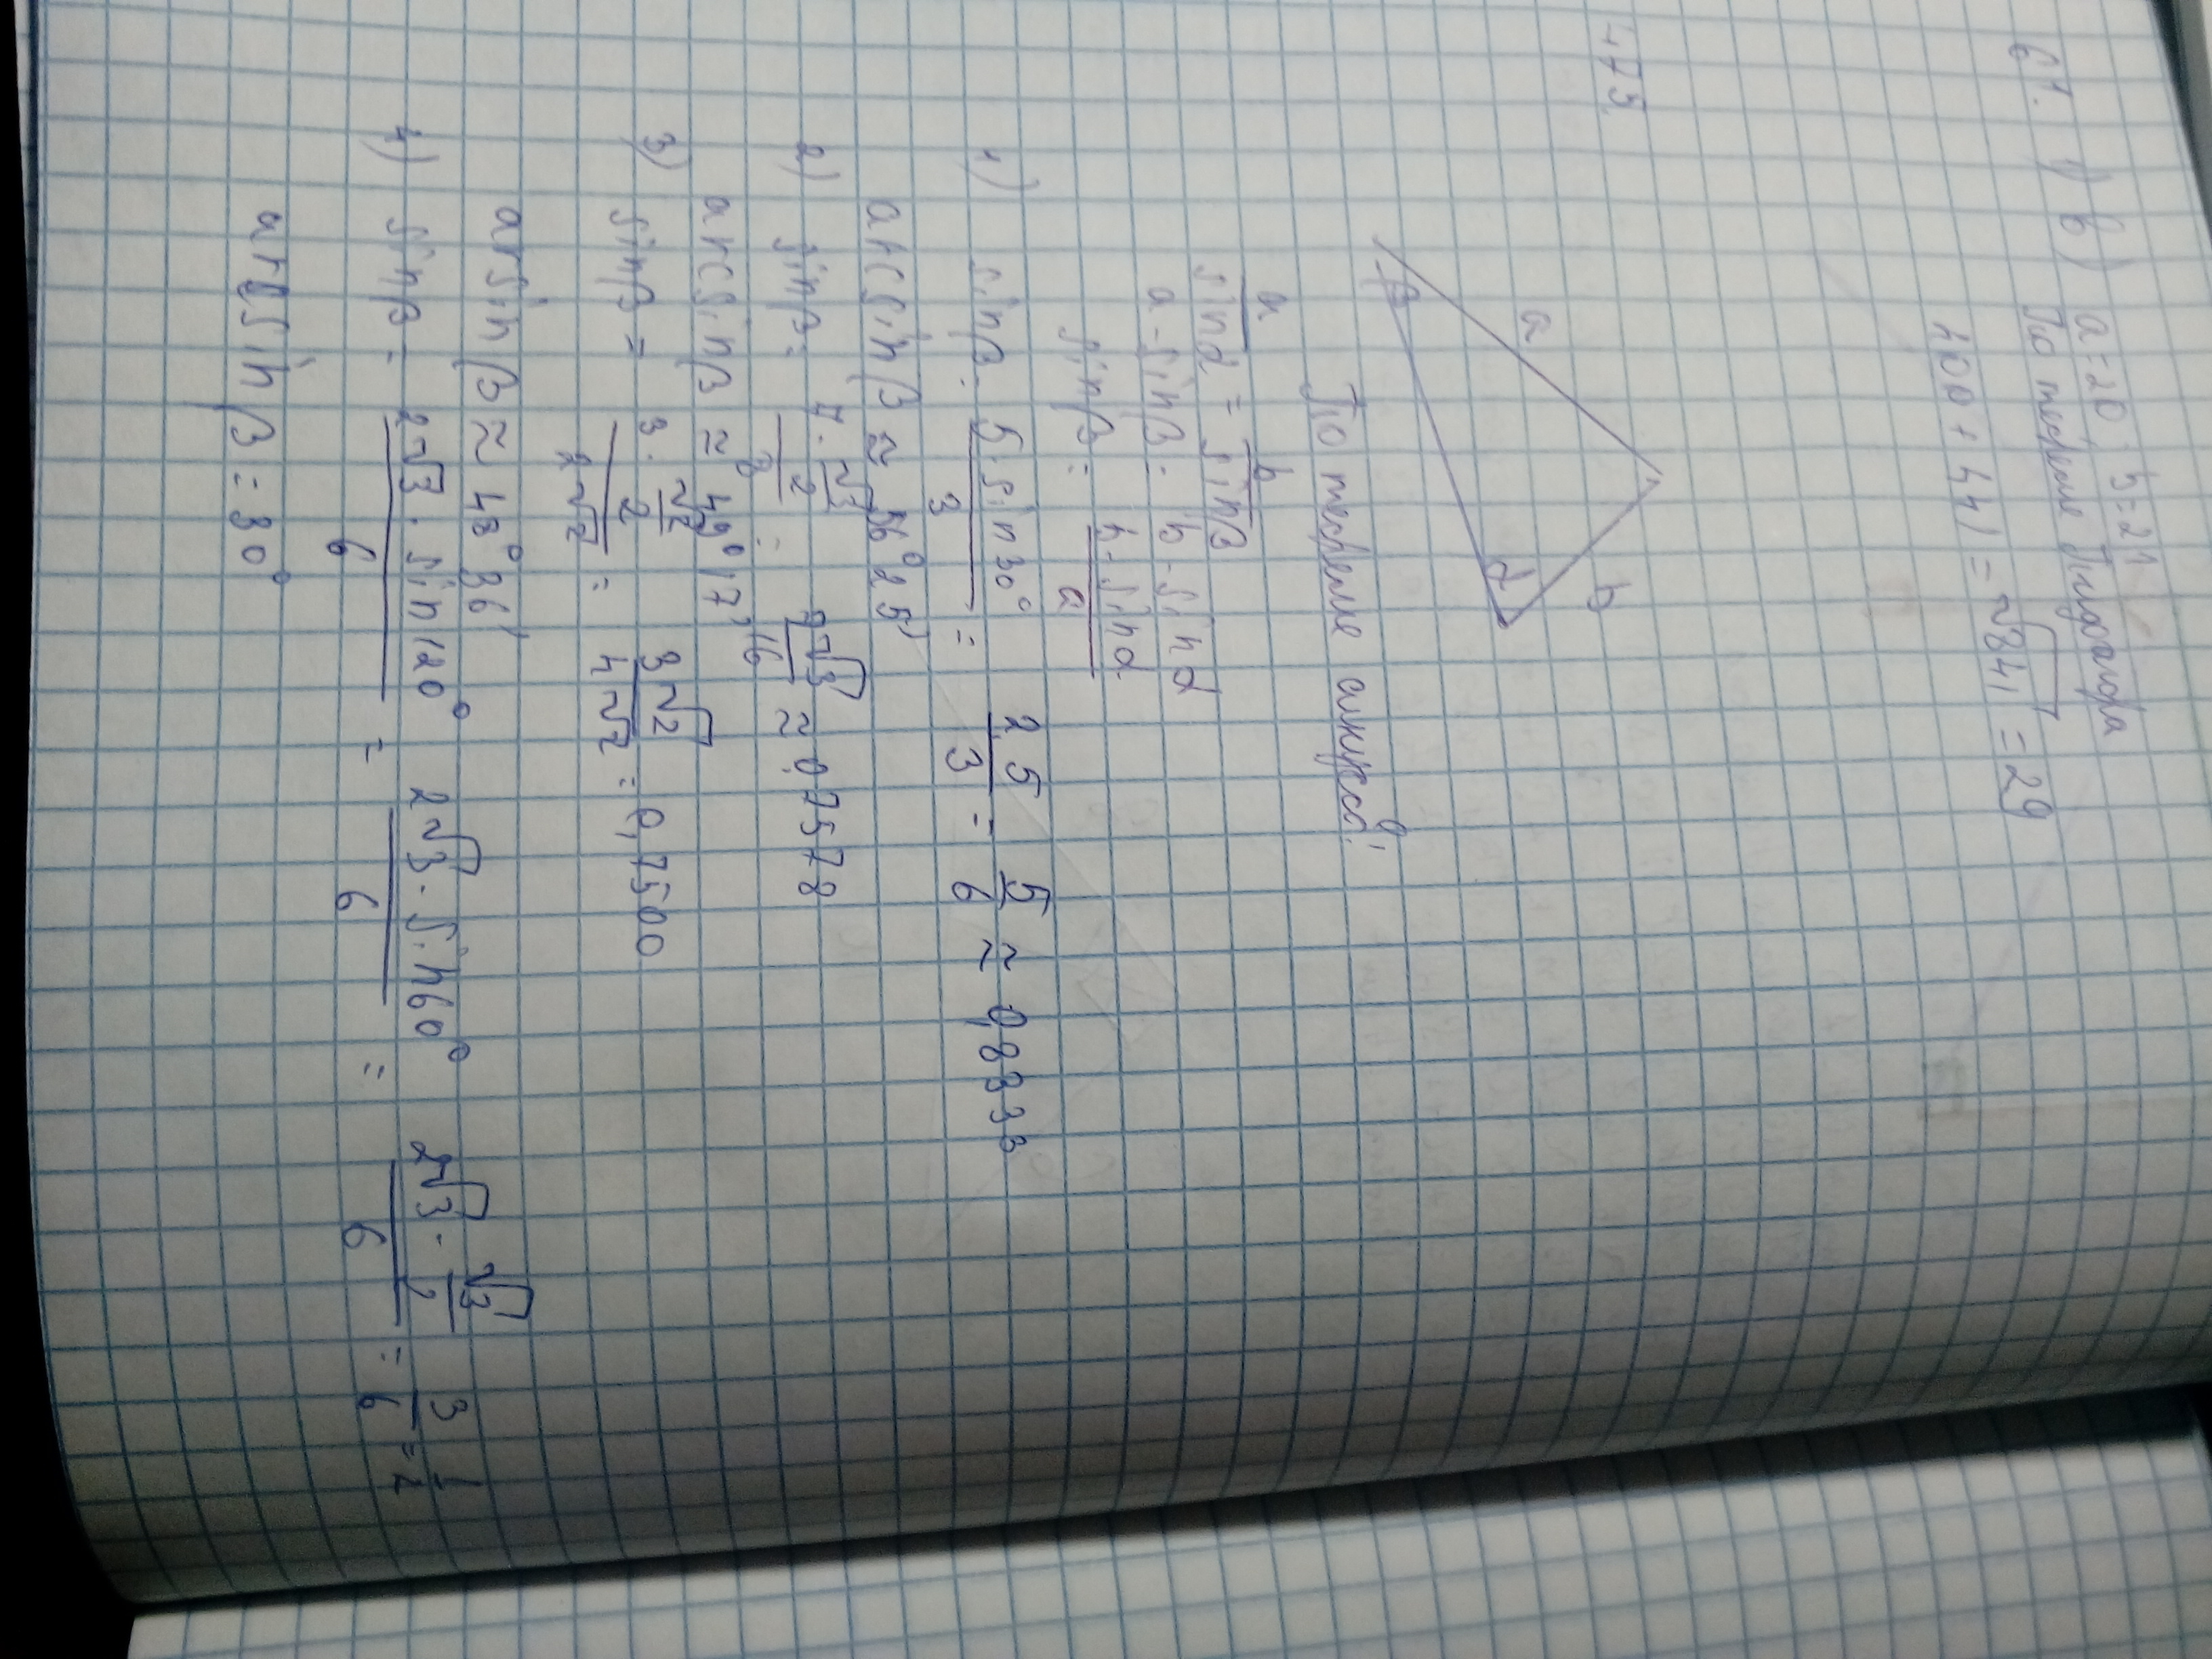 61. 1) в) a=20 b=21
По теореме Пифагора
400 + 441 = √841 = 29
473.
a
b
β
α
По теореме синусов:
a/sinα = b/sinβ
a·sinβ = b·sinα
sinβ = b·sinα/a
1) sinβ = 5·sin30°/3 = 2,5/3 = 5/6 ≈ 0,8333
arcsinβ ≈ 56°25'
2) sinβ = 7·√3/2/8 = 7√3/16 ≈ 0,7578
arcsinβ ≈ 49°17'
3) sinβ = 3·√2/2/2√2 = 3√2/4√2 = 0,7500
arsinβ ≈ 48°36'
4) sinβ = 2√3·sin120°/6 = 2√3·sin60°/6 = 2√3·√3/2/6 = 3/6 = 1/2
arcsinβ = 30°